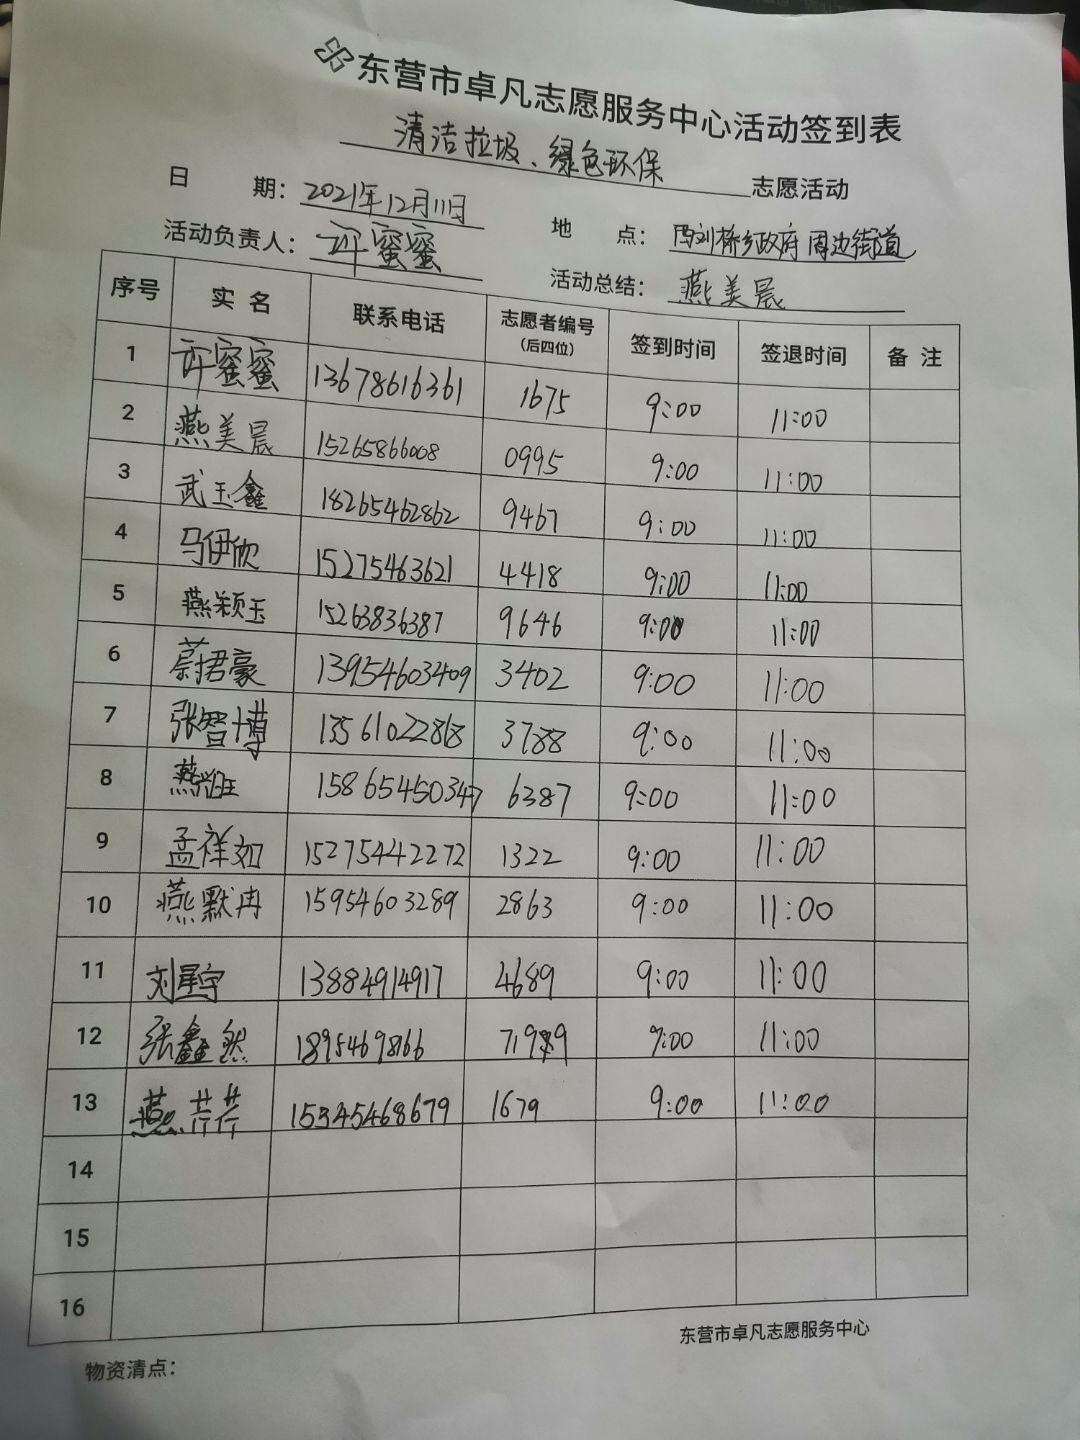 东营市卓凡志愿服务中心活动签到表
清洁垃圾、绿色环保 志愿活动
日 期：2021年12月11日 地 点：陈刘桥乡政府周边街道
活动负责人：许蜜蜜 活动总结：燕美晨
序号 实名 联系电话 志愿者编号（后四位） 签到时间 签退时间 备注
1 许蜜蜜 13678616361 1675 9:00 11:00
2 燕美晨 15265866008 0995 9:00 11:00
3 武玉鑫 18265462862 9467 9:00 11:00
4 马伊欣 15275463621 4418 9:00 11:00
5 燕颖玉 15263836387 9646 9:00 11:00
6 蔚珺豪 13954603409 3402 9:00 11:00
7 张智博 13561022818 3788 9:00 11:00
8 燕 15865450347 6387 9:00 11:00
9 孟祥如 15275442272 1322 9:00 11:00
10 燕默冉 15954603289 2863 9:00 11:00
11 刘星宇 13884914917 4689 9:00 11:00
12 张鑫然 1895469866 9:00 11:00
13 燕芹芹 15345468679 1679 9:00 11:00
14
15
16
东营市卓凡志愿服务中心
物资清点：